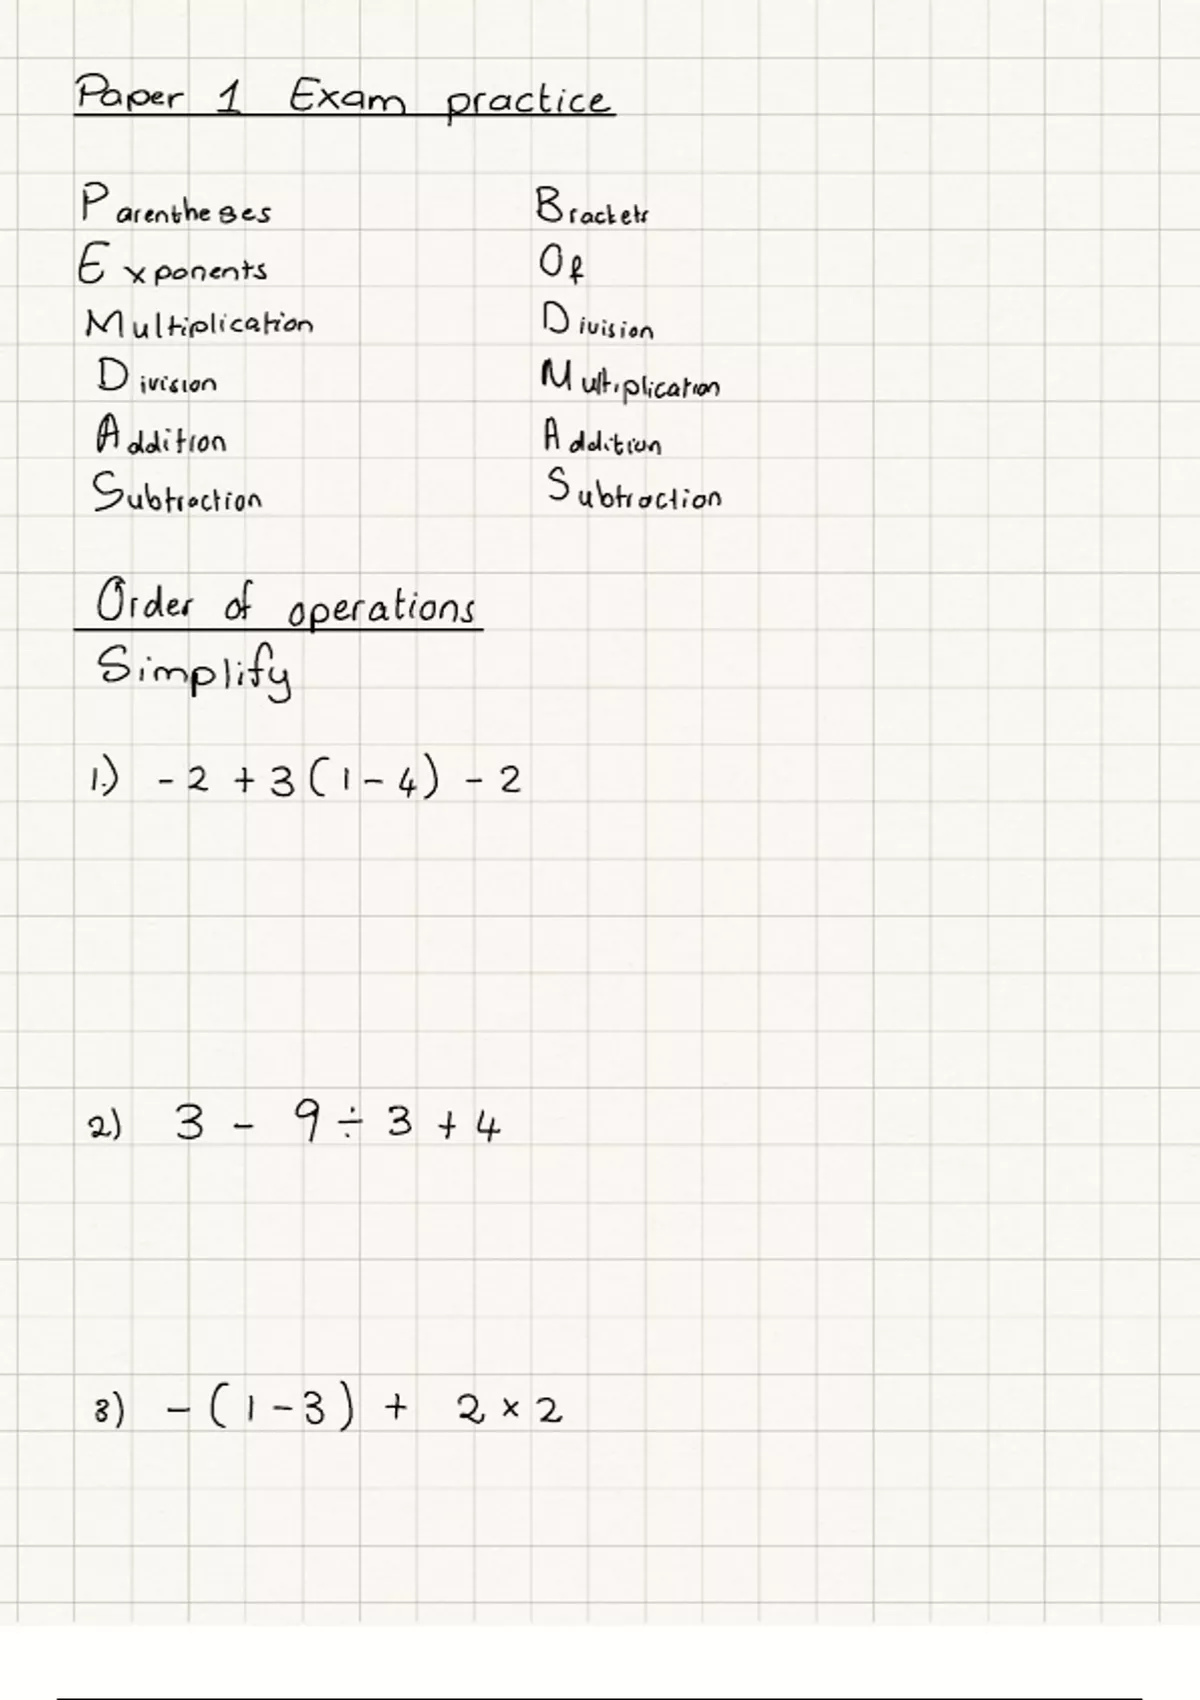 Paper 1 Exam practice
Parentheses Brackets
Exponents Of
Multiplication Division
Division Multiplication
Addition Addition
Subtraction Subtraction
Order of operations
Simplify
1.) -2 + 3(1-4) - 2
2) 3 - 9 ÷ 3 + 4
3) -(1-3) + 2 × 2